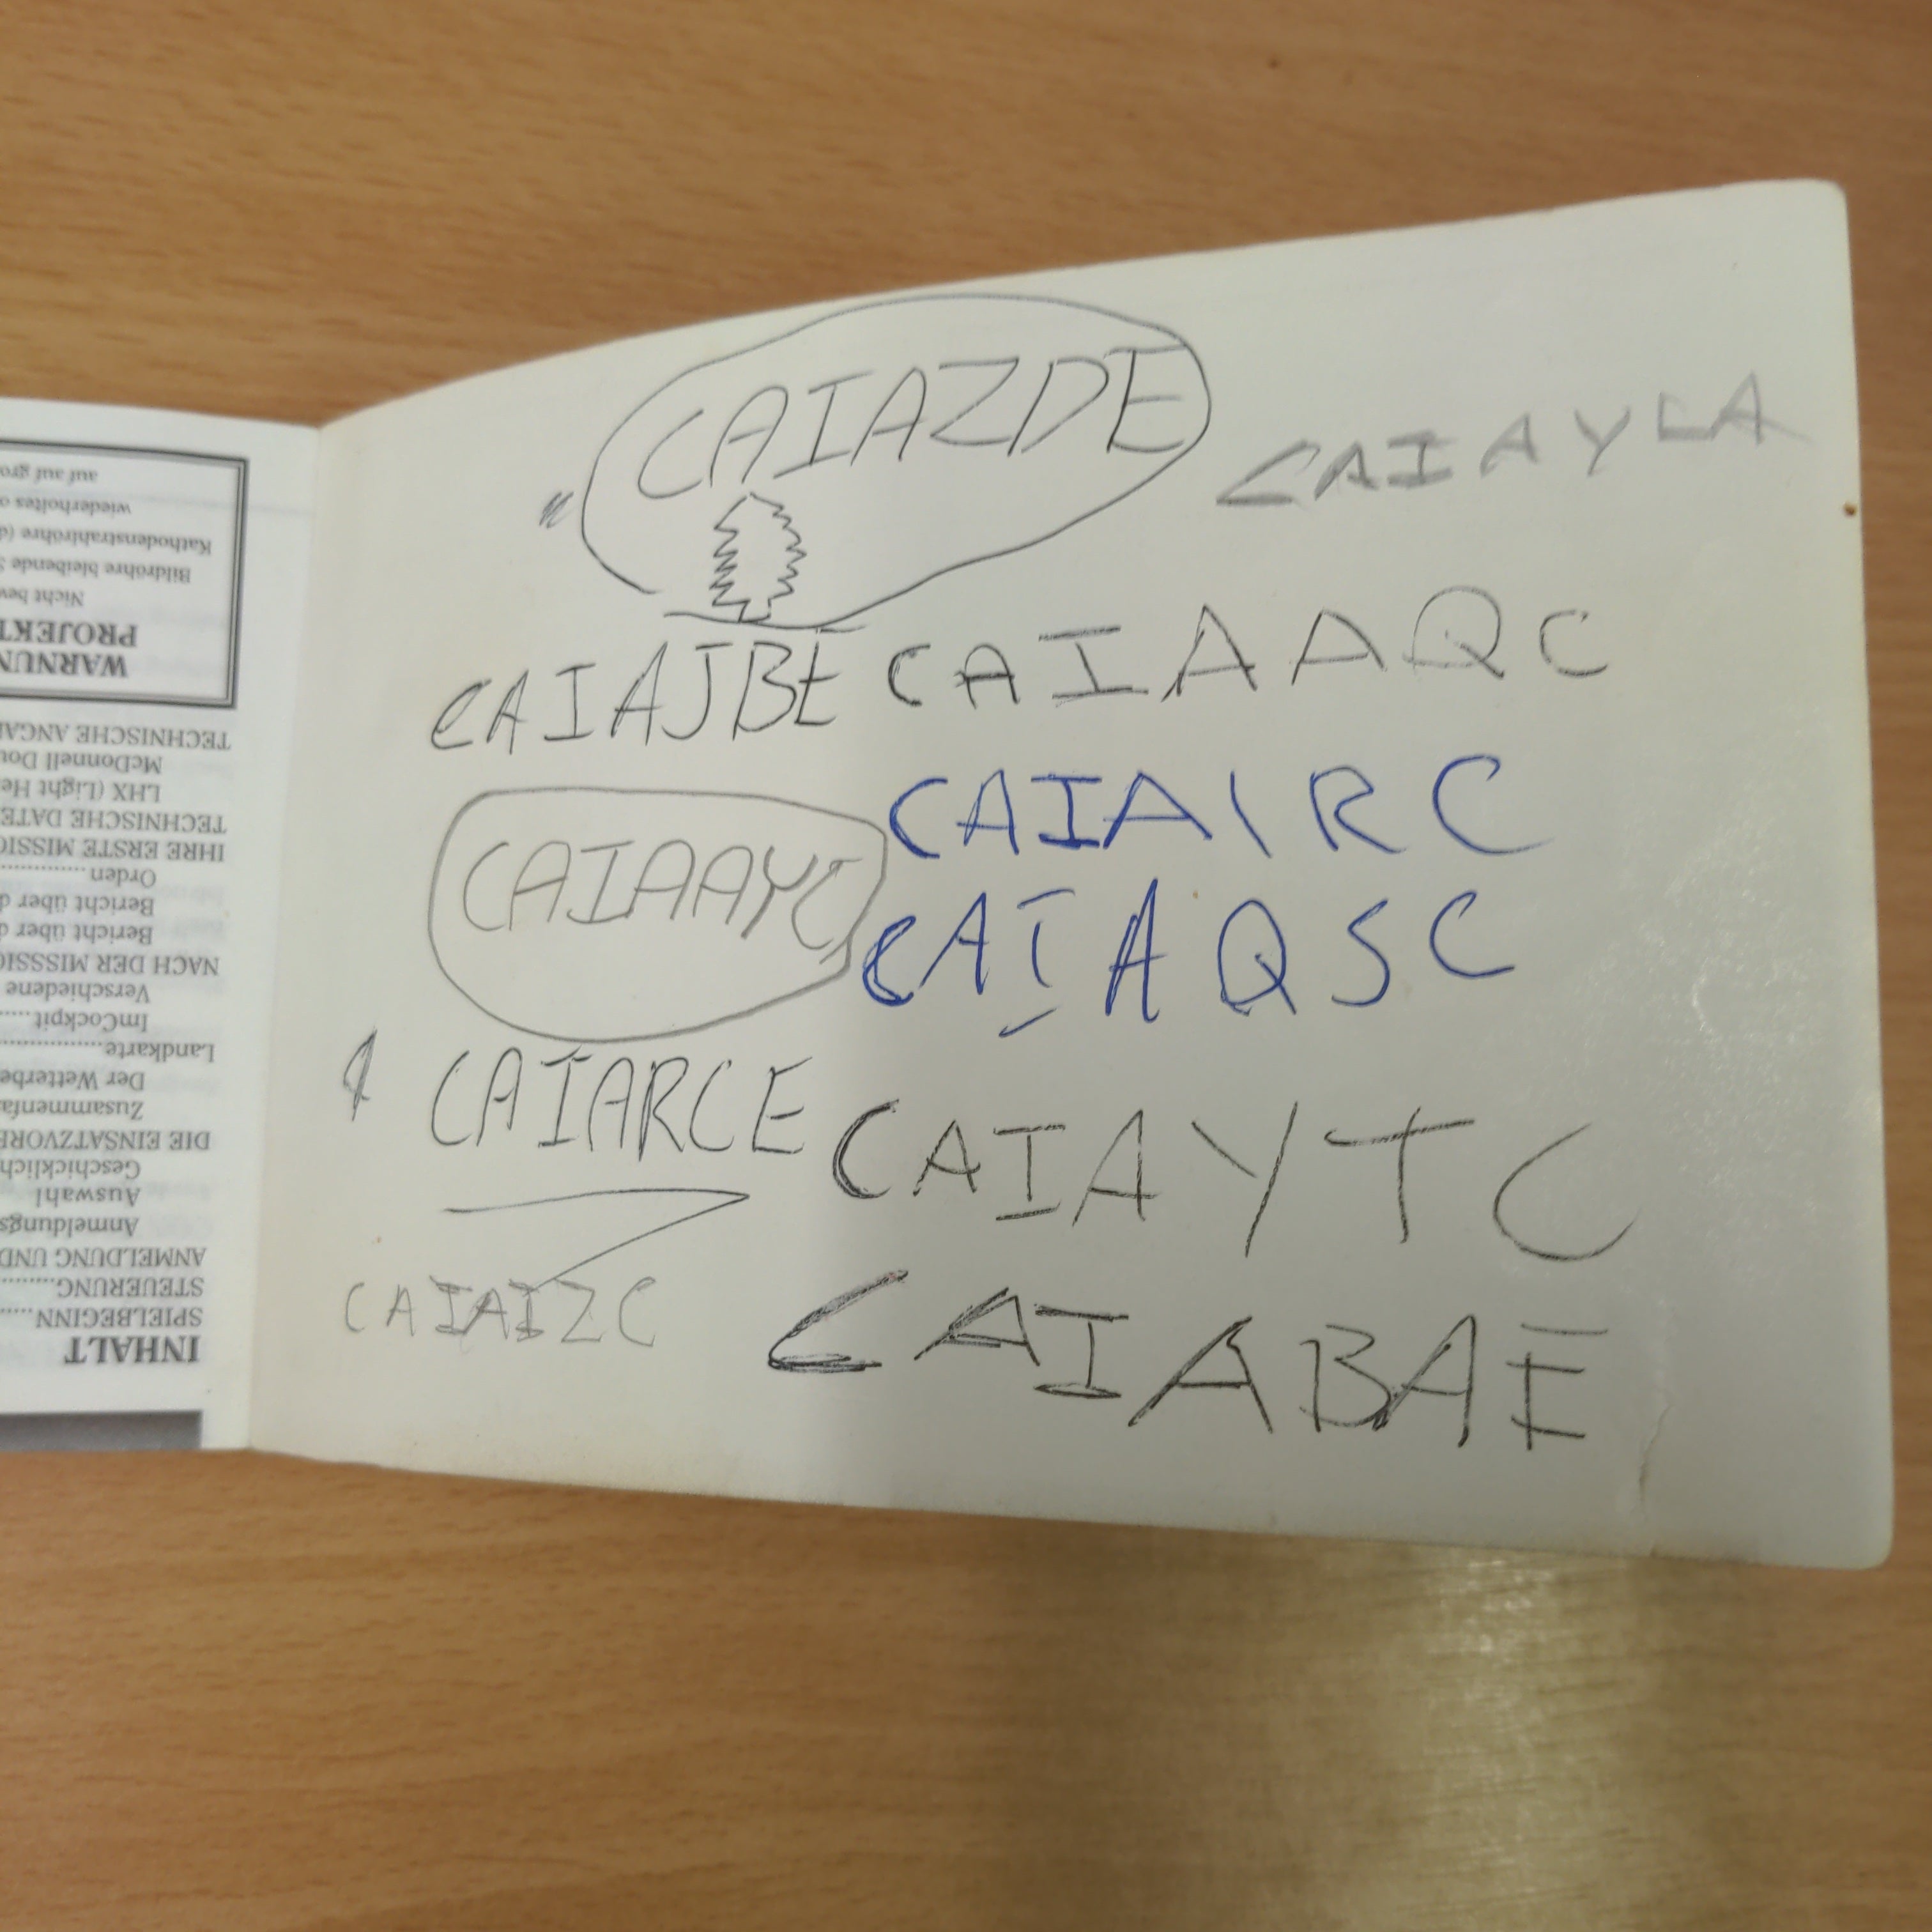 CAIAZDE
CAIAYLA
CAIAJBE
CAIAAQC
CAIAIRC
CAIAAYC
CAIAQSC
CAIARCE
CAIAYTC
CAIAIZC
CAIABAE
auf auf gro
wiederholtes
Kathodenstrahlröhre (d
Bildröhre bleibende
Nicht bew
PROJEKT
WARNUN
TECHNISCHE ANGA
McDonnell Dou
LHX (Light He
TECHNISCHE DATE
IHRE ERSTE MISSIO
Orden
Bericht über d
Bericht über d
NACH DER MISSSIO
Verschiedene
ImCockpit
Landkarte
Der Wetterbe
Zusammenfa
DIE EINSATZVORE
Geschicklich
Auswahl
Anmeldungs
ANMELDUNG UND
STEUERUNG
SPIELBEGINN
INHALT